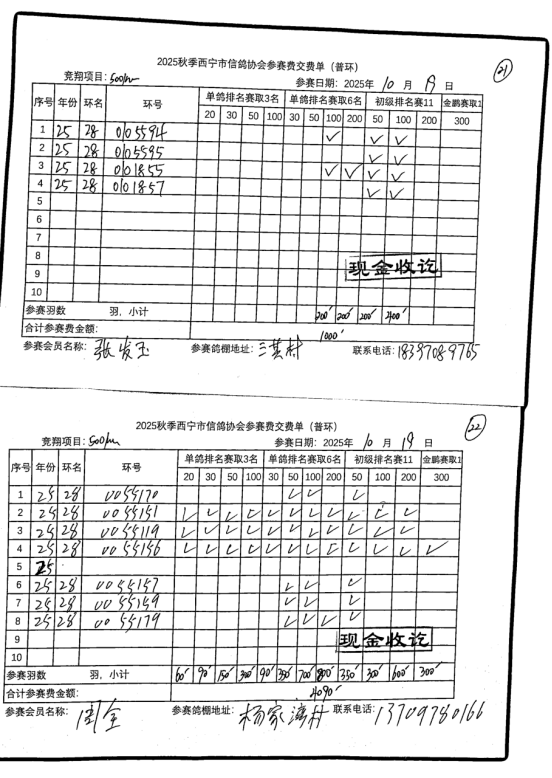 21
2025秋季西宁市信鸽协会参赛费交费单（普环）
竞翔项目：500km 参赛日期：2025年 10 月 19 日
序号 年份 环名 环号 单鸽排名赛取3名 单鸽排名赛取6名 初级排名赛11 金鹏赛取1
20 30 50 100 30 50 100 200 50 100 200 300
1 25 28 0105594 ✓ ✓ ✓
2 25 28 0105595 ✓ ✓
3 25 28 0101855 ✓ ✓ ✓ ✓
4 25 28 0101857 ✓ ✓
5
6
7
8
9
10
现金收讫
参赛羽数 羽，小计 200 200 200 400
合计参赛费金额： 1000
参赛会员名称：张发玉 参赛鸽棚地址：三其村 联系电话：18397089765
22
2025秋季西宁市信鸽协会参赛费交费单（普环）
竞翔项目：500km 参赛日期：2025年 10 月 19 日
序号 年份 环名 环号 单鸽排名赛取3名 单鸽排名赛取6名 初级排名赛11 金鹏赛取1
20 30 50 100 30 50 100 200 50 100 200 300
1 25 28 0055170 ✓ ✓ ✓
2 25 28 0055151 ✓ ✓ ✓ ✓ ✓ ✓ ✓ ✓ ✓ ✓ ✓
3 25 28 0055119 ✓ ✓ ✓ ✓ ✓ ✓ ✓ ✓ ✓ ✓ ✓
4 25 28 0055156 ✓ ✓ ✓ ✓ ✓ ✓ ✓ ✓ ✓ ✓ ✓ ✓
5 25
6 25 28 0055157 ✓ ✓ ✓
7 25 28 0055159 ✓ ✓ ✓
8 25 28 0055179 ✓ ✓ ✓ ✓
9
10
现金收讫
参赛羽数 羽，小计 60 90 150 300 90 350 700 800 350 300 600 300
合计参赛费金额： 4090
参赛会员名称：周全 参赛鸽棚地址：杨家湾村 联系电话：13709780166